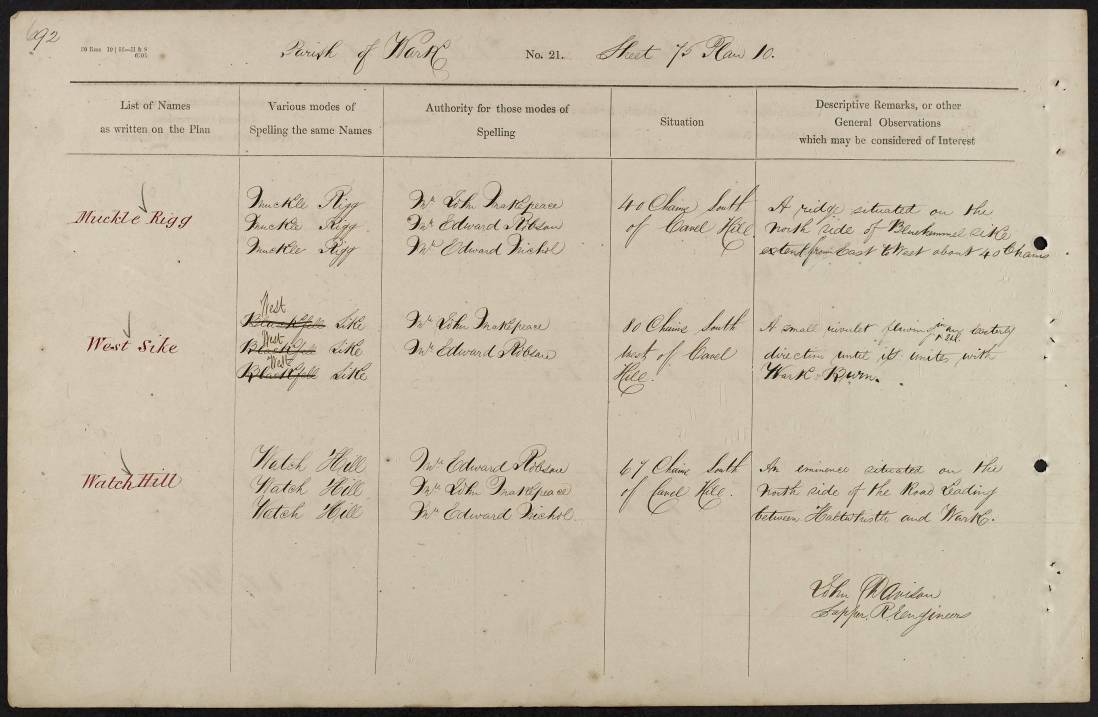 692
Parish of Wark No. 21. Sheet 75 Plan 10.
List of Names
as written on the Plan
Various modes of
Spelling the same Names
Authority for those modes of
Spelling
Situation
Descriptive Remarks, or other
General Observations
which may be considered of Interest
Muckle Rigg
Muckle Rigg
Muckle Rigg
Muckle Rigg
Mr John Makepeace
Mr Edward Robson
Mr Edward Nichol
40 Chains South
of Cavel Hill
A ridge situated on the
North side of sike
extent from East to West about 40 Chains
West Sike
West
Blackfell Sike
West
Blackfell Sike
West
Blackfell Sike
Mr John Makepeace
Mr Edward Robson
80 Chains South
west of Cavel
Hill.
A small rivulet flowing in an Easterly
direction until it unites with
Wark Burn.
Watch Hill
Watch Hill
Watch Hill
Watch Hill
Mr Edward Robson
Mr John Makepeace
Mr Edward Nichol.
67 Chains South
of Cavel Hill.
An eminence situated on the
North side of the Road Leading
between Haltwhistle and Wark.
John Davison
Sapper R. Engineers